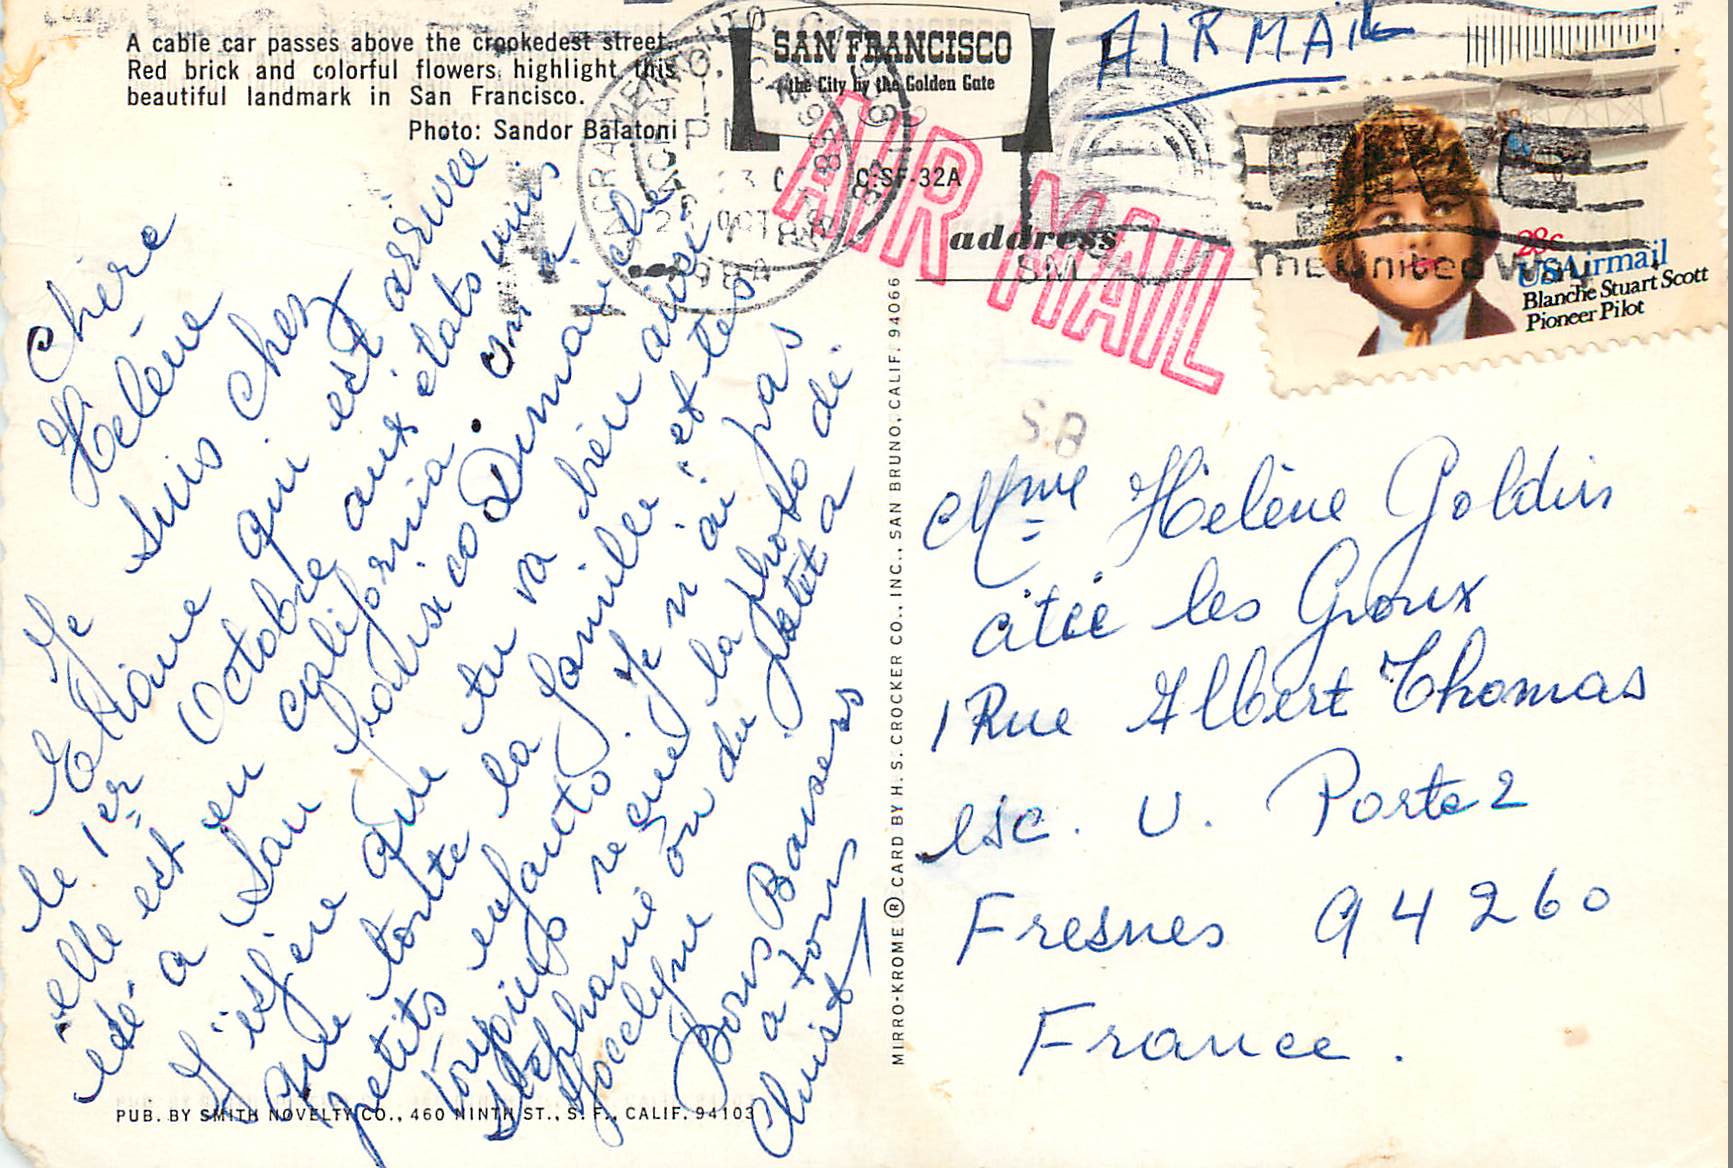 A cable car passes above the crookedest street.
Red brick and colorful flowers highlight this
beautiful landmark in San Francisco.
Photo: Sandor Balatoni
SAN FRANCISCO
the City by the Golden Gate
C.SF-32A
AIR MAIL
AIR MAIL
address
SM
28c
USAirmail
Blanche Stuart Scott
Pioneer Pilot
United Way
SB
Chère
Hélène
Je suis chez
Eliane qui est arrivée
le 1er Octobre aux etats unis
elle est en california on a
été a San fransisco Dimanche
J'espère que tu va bien ainsi
que toute la famille et tes
petits enfants. Je n'ai pas
toujours reçue la photo de
Stéphanie ou du
Jocelyne
Bons Baisers
a tous
Christ
Mme Hélène Goldin
citée les Groux
1 Rue Albert Thomas
esc. U. Porte 2
Fresnes 94260
France.
MIRRO-KROME ® CARD BY H. S. CROCKER CO., INC., SAN BRUNO, CALIF. 94066
PUB. BY SMITH NOVELTY CO., 460 NINTH ST., S. F., CALIF. 94103